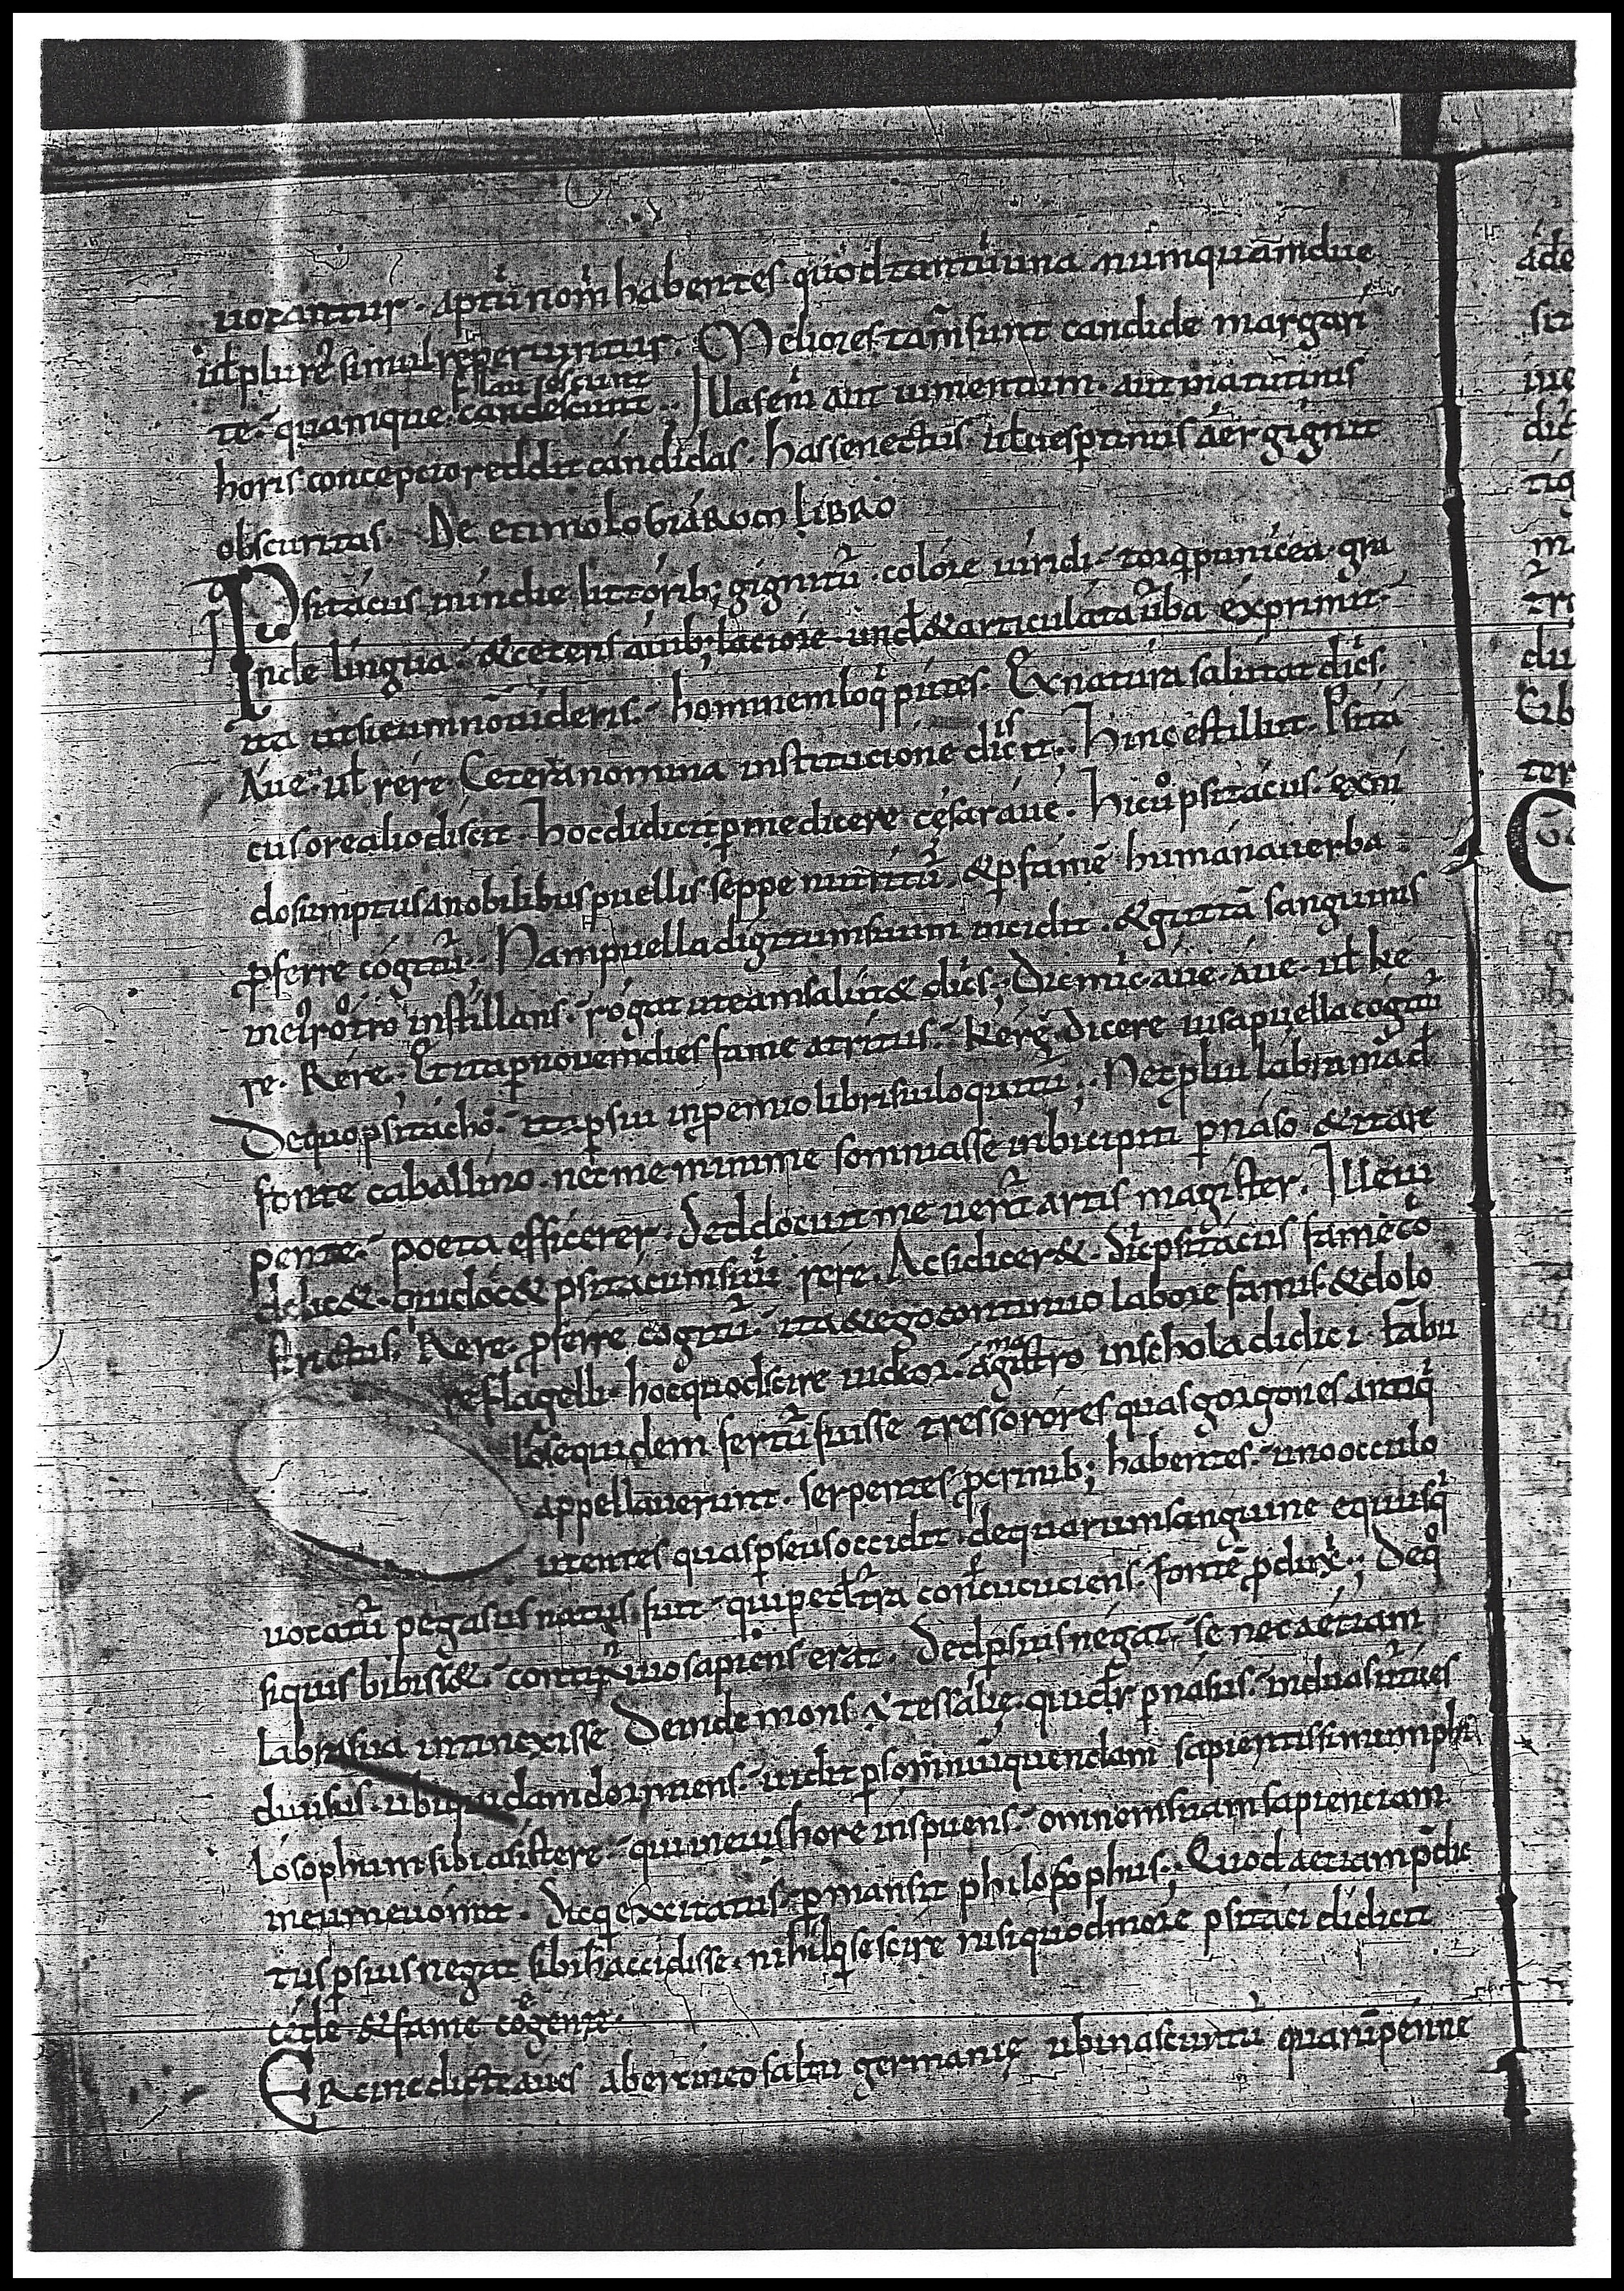 uocantur. aptū nom̄ habentes quod tantū una numquam due
ul̄ plures simul reperiuntur. Meliores tam̄ sunt candide margari
flauescunt
tę. quam que candescunt. Illas enī aut iuuentum. aut matutinis
horis concepcio reddit candidas. has senectus ul̄ uespertinus aer gignit
obscuritas. De etimologiarom libro
Psitacus in indie littorib; gignitū. colore uiridi. torq; punicea. gra
nde lingua. & ceteris auib; laciore. und̄ & articulata uerba exprimit
ita ut si eum nō uideris. hominem loqi putes. Ex natura salutat dicens.
Aue. ul̄ rere. Cetera nomina institucione discit. Hinc est illut. Psita
cus ore alio discit. hoc didici p me dicere cęsar aue. Hic ū psitacus. ex ni
do sumptus a nobilibus puellis sęppe nutritū. & p famē humana uerba
pferre cogitū. Nam puella digitum suum incidit. & guttā sanguinis
in ei rostro instillans. rogat ut eam salut& dicens; Dic mic. aue. aue. ul̄ ke
re. Rere. Et ita p nouem dies fame atritus. Kerę dicere iusa puella cogitū
De quo psitacho. ita psiu in pemio libri sui loquitū; Neq; pluī labra mad̄
fonte caballino. nec me minime somniasse in bicipiti pnaso & ita re
pente. poeta efficerer. Sed docuit me uent artis magister. Ille ū
delic&. qui doc& psitacum suū rere. Ac si dicer&. sic psitacus fame co
strictus. Rere. pferre cogitū. ita & ego continuo labore famis & dolo
re flagelli. hoc quod scire uideor. a magistro in schola didici. fabu
lose quidem fertū fuisse tres sorores quas gorgones antiqi
appellauerunt. serpentes p crinib; habentes. uno occulo
utentes quas pseus occidit. de quarum sanguine equus qi
uocatū pegasus natus fuit. qui pede terra concucuciens. fontē pdux; De qo
si quis bibiss&. continuo sapiens erat. Sed psius negat. se nec aetiam
labra sua intinexisse Deinde mons ē tessalie. qui dr pnasus. in duas uertices
diuisus. ubi quidam dormiens. uidit p somnium quendam sapientissimum phi
losophum sibi asistere. qui in eius hore inspuens. omnem suam sapienciam
in eum euomit. Sicq; excitatus. pmansit philosophus; Quod aetiam pdic
tus psius negat sibi h̄ accidisse. nihilq; se scire nisi quod more psitaci didicit
cęde & fame cogente.
ERcine dicte aues ab ercineo saltu germanię ubi nascuntū quarū penne